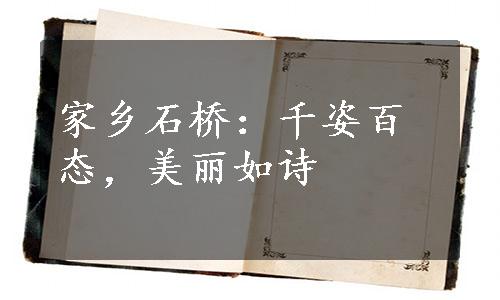 家乡石桥：千姿百
态，美丽如诗